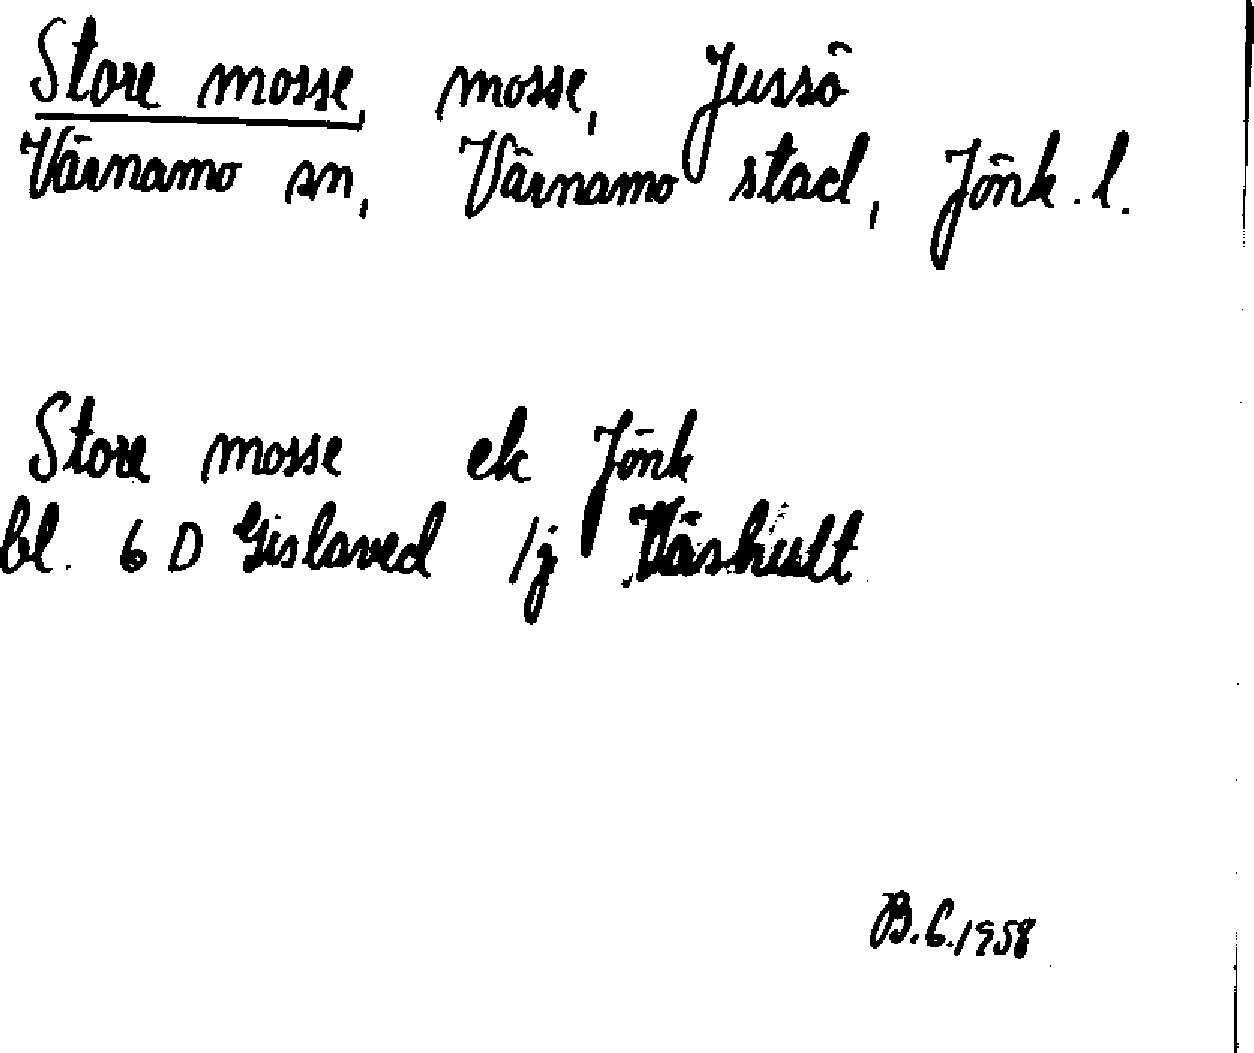 Store mosse, mosse, Jussö
Värnamo sn, Värnamo stad, Jönk. l.
Store mosse ek Jönk
bl. 6 D Gislaved 1j Våshult
B.G.1958